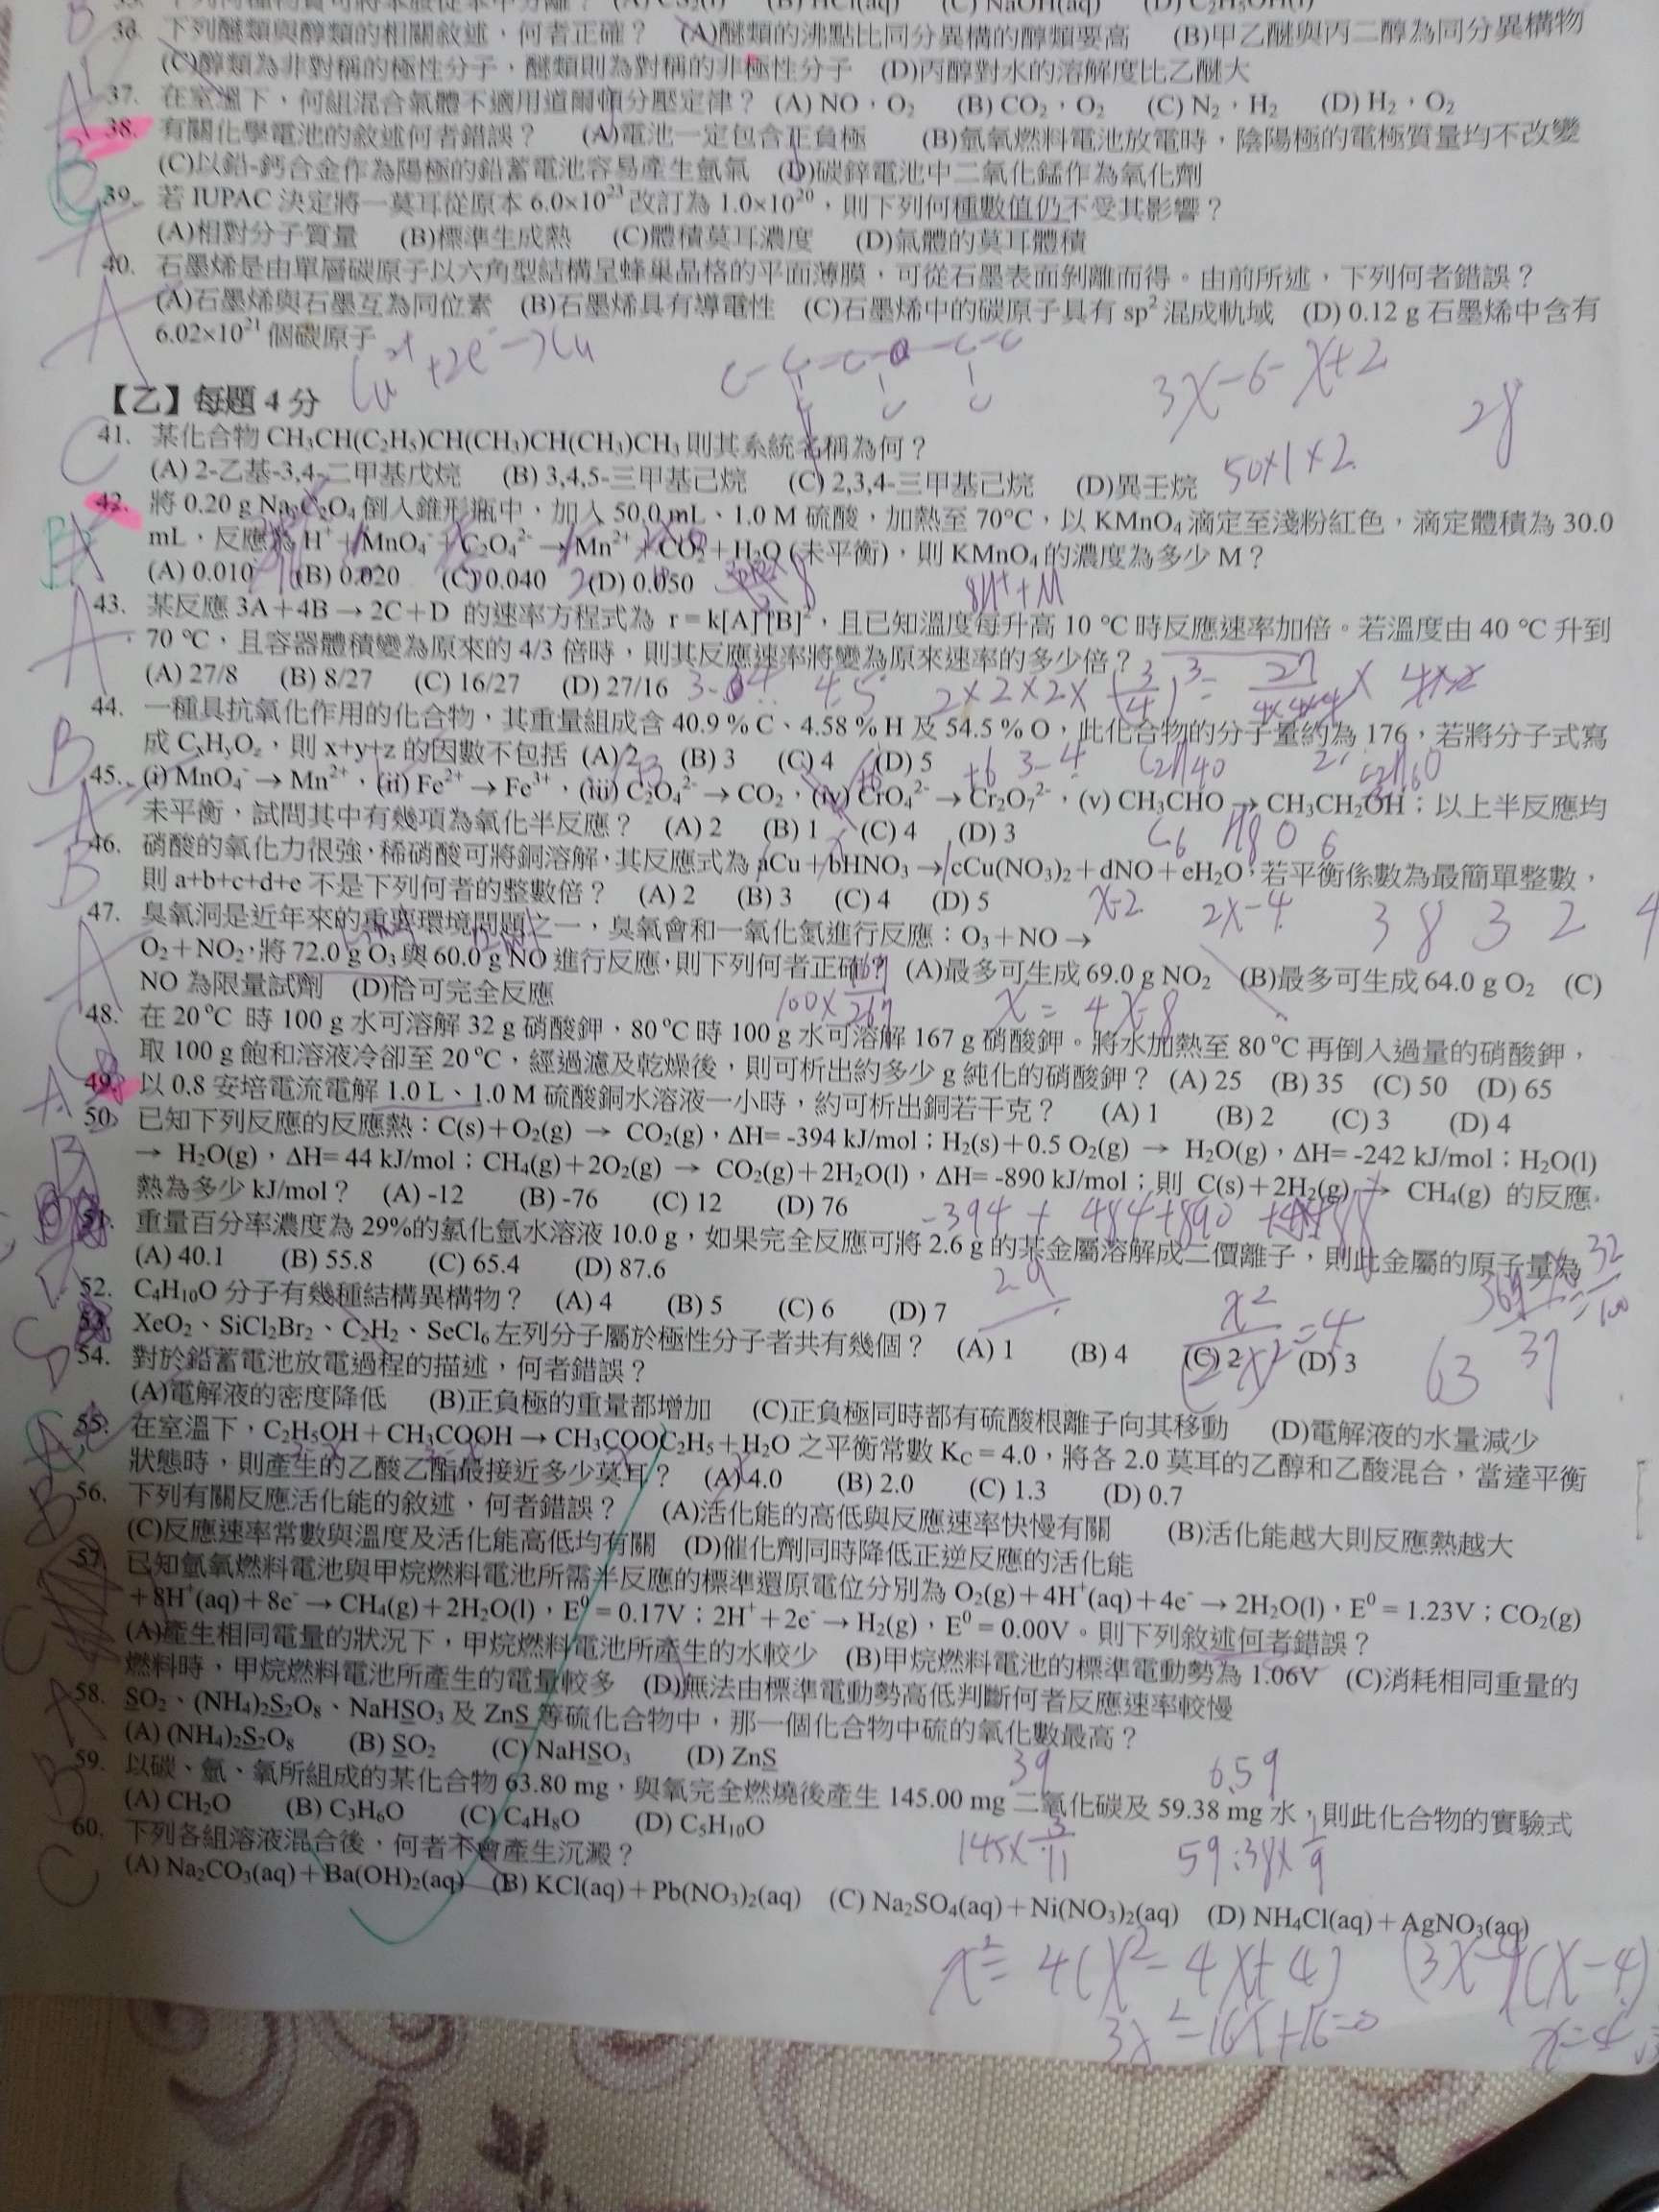 36. 下列醚類與醇類的相關敘述，何者正確？ (A)醚類的沸點比同分異構的醇類要高 (B)甲乙醚與丙二醇為同分異構物
(C)醇類為非對稱的極性分子，醚類則為對稱的非極性分子 (D)丙醇對水的溶解度比乙醚大
37. 在室溫下，何組混合氣體不適用道爾頓分壓定律？ (A) NO，O₂ (B) CO₂，O₂ (C) N₂，H₂ (D) H₂，O₂
38. 有關化學電池的敘述何者錯誤？ (A)電池一定包含正負極 (B)氫氧燃料電池放電時，陰陽極的電極質量均不改變
(C)以鉛-鈣合金作為陽極的鉛蓄電池容易產生氫氣 (D)碳鋅電池中二氧化錳作為氧化劑
39. 若 IUPAC 決定將一莫耳從原本 6.0×10²³ 改訂為 1.0×10²⁰，則下列何種數值仍不受其影響？
(A)相對分子質量 (B)標準生成熱 (C)體積莫耳濃度 (D)氣體的莫耳體積
40. 石墨烯是由單層碳原子以六角型結構呈蜂巢晶格的平面薄膜，可從石墨表面剝離而得。由前所述，下列何者錯誤？
(A)石墨烯與石墨互為同位素 (B)石墨烯具有導電性 (C)石墨烯中的碳原子具有 sp² 混成軌域 (D) 0.12 g 石墨烯中含有
6.02×10²¹ 個碳原子
Cu²⁺+2e⁻→Cu
3x-6-x+2
28
【乙】每題 4 分
41. 某化合物 CH₃CH(C₂H₅)CH(CH₃)CH(CH₃)CH₃ 則其系統名稱為何？
(A) 2-乙基-3,4-二甲基戊烷 (B) 3,4,5-三甲基己烷 (C) 2,3,4-三甲基己烷 (D)異壬烷
50×1×2
42. 將 0.20 g Na₂C₂O₄ 倒入錐形瓶中，加入 50.0 mL、1.0 M 硫酸，加熱至 70℃，以 KMnO₄ 滴定至淺粉紅色，滴定體積為 30.0
mL，反應為 H⁺ + MnO₄⁻ + C₂O₄²⁻ → Mn²⁺ + CO₂ + H₂O (未平衡)，則 KMnO₄ 的濃度為多少 M？
(A) 0.010 (B) 0.020 (C) 0.040 (D) 0.050
8H⁺+M
43. 某反應 3A + 4B → 2C + D 的速率方程式為 r = k[A][B]²，且已知溫度每升高 10 ℃ 時反應速率加倍。若溫度由 40 ℃ 升到
70 ℃，且容器體積變為原來的 4/3 倍時，則其反應速率將變為原來速率的多少倍？
(A) 27/8 (B) 8/27 (C) 16/27 (D) 27/16
44. 一種具抗氧化作用的化合物，其重量組成含 40.9 % C、4.58 % H 及 54.5 % O，此化合物的分子量約為 176，若將分子式寫
成 CₓHᵧO_z，則 x+y+z 的因數不包括 (A) 2 (B) 3 (C) 4 (D) 5
45. (i) MnO₄⁻ → Mn²⁺，(ii) Fe²⁺ → Fe³⁺，(iii) C₂O₄²⁻ → CO₂，(iv) CrO₄²⁻ → Cr₂O₇²⁻，(v) CH₃CHO → CH₃CH₂OH；以上半反應均
未平衡，試問其中有幾項為氧化半反應？ (A) 2 (B) 1 (C) 4 (D) 3
C₆ H₈ O₆
46. 硝酸的氧化力很強，稀硝酸可將銅溶解，其反應式為 aCu + bHNO₃ → cCu(NO₃)₂ + dNO + eH₂O，若平衡係數為最簡單整數，
則 a+b+c+d+e 不是下列何者的整數倍？ (A) 2 (B) 3 (C) 4 (D) 5
x-2 2x-4 3 8 3 2 4
47. 臭氧洞是近年來的重要環境問題之一，臭氧會和一氧化氮進行反應：O₃ + NO →
O₂ + NO₂，將 72.0 g O₃ 與 60.0 g NO 進行反應，則下列何者正確？ (A)最多可生成 69.0 g NO₂ (B)最多可生成 64.0 g O₂ (C)
NO 為限量試劑 (D)恰可完全反應
100×167/267 x = 4x-8
48. 在 20℃ 時 100 g 水可溶解 32 g 硝酸鉀，80℃ 時 100 g 水可溶解 167 g 硝酸鉀。將水加熱至 80℃ 再倒入過量的硝酸鉀，
取 100 g 飽和溶液冷卻至 20℃，經過濾及乾燥後，則可析出約多少 g 純化的硝酸鉀？ (A) 25 (B) 35 (C) 50 (D) 65
49. 以 0.8 安培電流電解 1.0 L、1.0 M 硫酸銅水溶液一小時，約可析出銅若干克？ (A) 1 (B) 2 (C) 3 (D) 4
50. 已知下列反應的反應熱：C(s) + O₂(g) → CO₂(g)，ΔH= -394 kJ/mol；H₂(s) + 0.5 O₂(g) → H₂O(g)，ΔH= -242 kJ/mol；H₂O(l)
→ H₂O(g)，ΔH= 44 kJ/mol；CH₄(g) + 2O₂(g) → CO₂(g) + 2H₂O(l)，ΔH= -890 kJ/mol；則 C(s) + 2H₂(g) → CH₄(g) 的反應
熱為多少 kJ/mol？ (A) -12 (B) -76 (C) 12 (D) 76
51. 重量百分率濃度為 29%的氯化氫水溶液 10.0 g，如果完全反應可將 2.6 g 的某金屬溶解成二價離子，則此金屬的原子量為
(A) 40.1 (B) 55.8 (C) 65.4 (D) 87.6
52. C₄H₁₀O 分子有幾種結構異構物？ (A) 4 (B) 5 (C) 6 (D) 7
53. XeO₂、SiCl₂Br₂、C₂H₂、SeCl₆ 左列分子屬於極性分子者共有幾個？ (A) 1 (B) 4 (C) 2 (D) 3
x²/(2-x)²=4
63 37
54. 對於鉛蓄電池放電過程的描述，何者錯誤？
(A)電解液的密度降低 (B)正負極的重量都增加 (C)正負極同時都有硫酸根離子向其移動 (D)電解液的水量減少
55. 在室溫下，C₂H₅OH + CH₃COOH → CH₃COOC₂H₅ + H₂O 之平衡常數 K_C = 4.0，將各 2.0 莫耳的乙醇和乙酸混合，當達平衡
狀態時，則產生的乙酸乙酯最接近多少莫耳？ (A) 4.0 (B) 2.0 (C) 1.3 (D) 0.7
56. 下列有關反應活化能的敘述，何者錯誤？ (A)活化能的高低與反應速率快慢有關 (B)活化能越大則反應熱越大
(C)反應速率常數與溫度及活化能高低均有關 (D)催化劑同時降低正逆反應的活化能
57. 已知氫氧燃料電池與甲烷燃料電池所需半反應的標準還原電位分別為 O₂(g) + 4H⁺(aq) + 4e⁻ → 2H₂O(l)，E⁰ = 1.23V；CO₂(g)
+ 8H⁺(aq) + 8e⁻ → CH₄(g) + 2H₂O(l)，E⁰ = 0.17V；2H⁺ + 2e⁻ → H₂(g)，E⁰ = 0.00V。則下列敘述何者錯誤？
(A)產生相同電量的狀況下，甲烷燃料電池所產生的水較少 (B)甲烷燃料電池的標準電動勢為 1.06V (C)消耗相同重量的
燃料時，甲烷燃料電池所產生的電量較多 (D)無法由標準電動勢高低判斷何者反應速率較慢
58. SO₂、(NH₄)₂S₂O₈、NaHSO₃ 及 ZnS 等硫化合物中，那一個化合物中硫的氧化數最高？
(A) (NH₄)₂S₂O₈ (B) SO₂ (C) NaHSO₃ (D) ZnS
39 6.59
59. 以碳、氫、氧所組成的某化合物 63.80 mg，與氧完全燃燒後產生 145.00 mg 二氧化碳及 59.38 mg 水，則此化合物的實驗式
(A) CH₂O (B) C₃H₆O (C) C₄H₈O (D) C₅H₁₀O
145×3/11 59.38×1/9
60. 下列各組溶液混合後，何者不會產生沉澱？
(A) Na₂CO₃(aq) + Ba(OH)₂(aq) (B) KCl(aq) + Pb(NO₃)₂(aq) (C) Na₂SO₄(aq) + Ni(NO₃)₂(aq) (D) NH₄Cl(aq) + AgNO₃(aq)
x²=4(x²-4x+4) (3x-4)(x-4)
3x²-16x+16=0